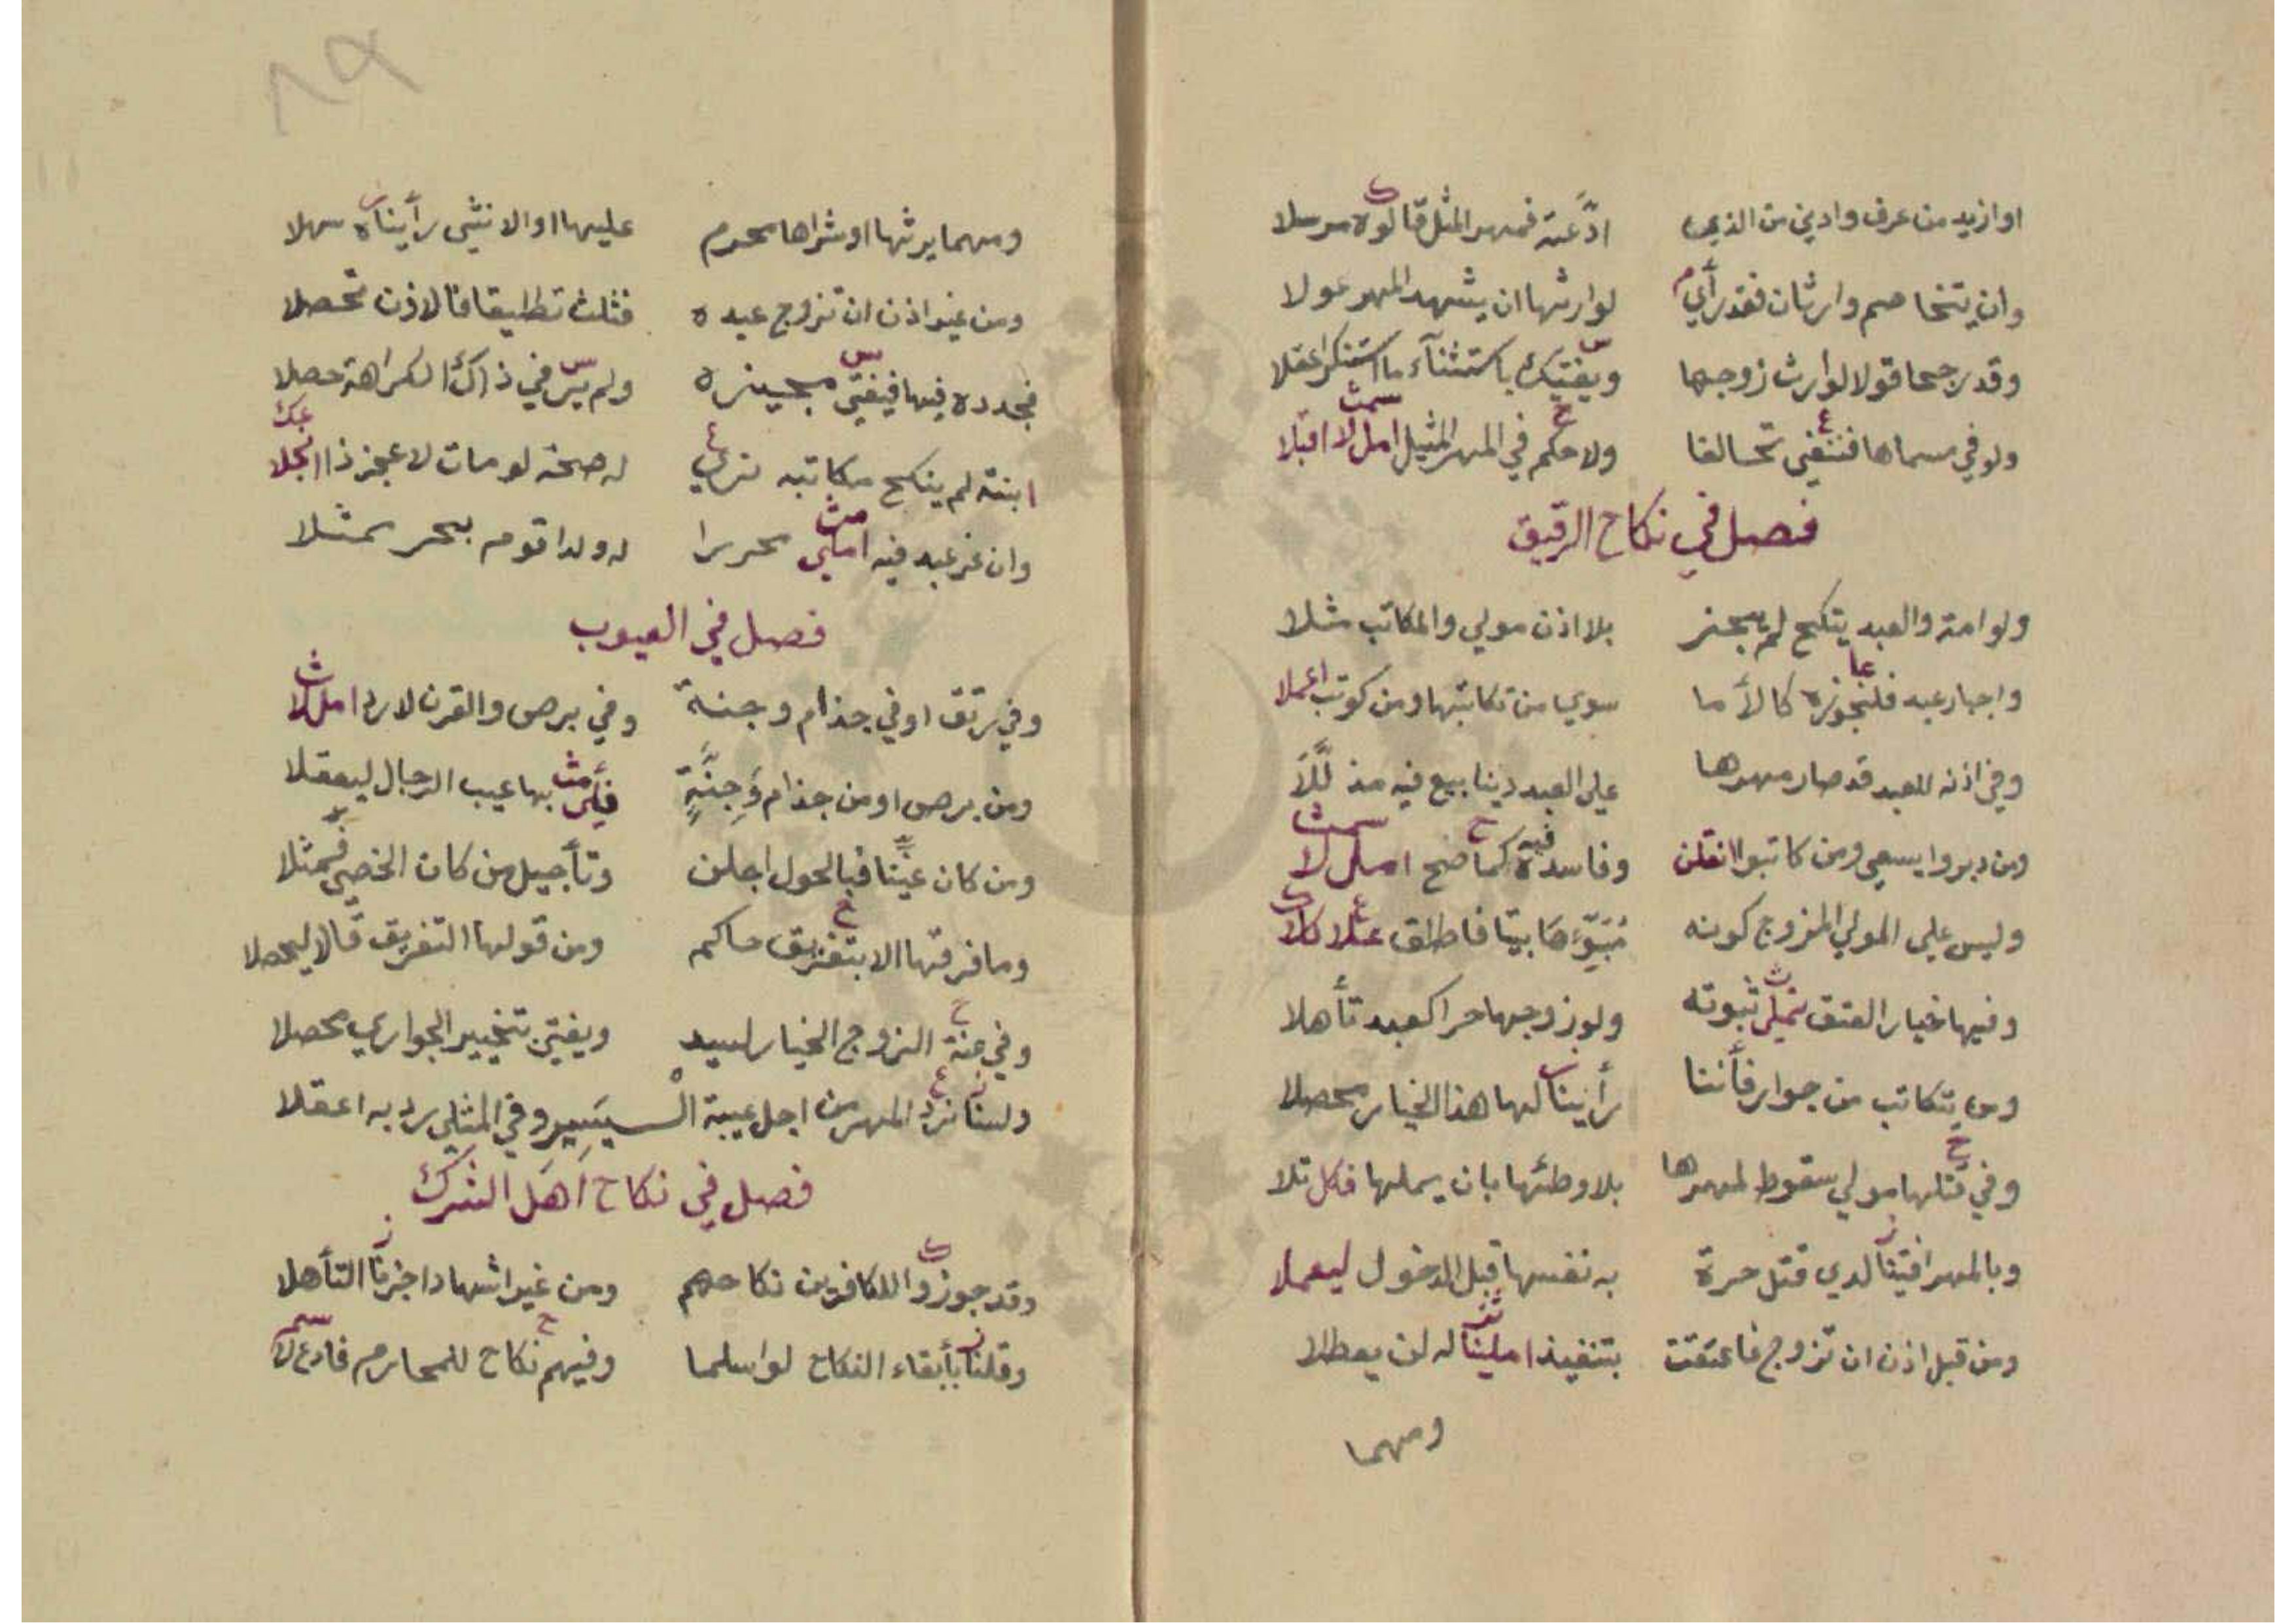 او ازيد من عرف وادني من الذي ادّعته فمهر المثل قالوه مرسلا
وان يتخاصم وارثان فقد رأي لوارثها ان يشهد المهر عولا
وقد رجحا قولا لوارث زوجها ويفتيك باستثناء ما استنكر اعقلا
ولو في مسماها فننفي تحالفا ولا حكم في المهر المثيل امل لا اقبلا
فصل في نكاح الرقيق
ولو امة والعبد ينكح لم يجز بلا اذن مولي والمكاتب مثلا
واجبار عبد فلنجوزه كالأما سوي من تكاتبها ومن كوتب اعملا
وفي اذنه للعبد قد صار مهرها علي العبد دينا بيع فيه مذللا
ومن دبروا يسعي ومن كاتبوا انقلن وفاسده فيه كما صح امل لا
وليس علي المولي المزوج كونه مُبَوِّءَهَا بيتا فاطلق علا كلا
وفيها خيار العتق نملي ثبوته ولو زوجها حرا كعبد تأهلا
ومن يتكاتب من جوار فأننا رأينا لها هذا الخيار محصلا
وفي قتلها مولي سقوط لمهرها بلا وطئها بان يملها فكل تلا
وبالمهر افتينا لدي قتل حرة به نفسها قبل الدخول ليعملا
ومن قبل اذن ان تزوج فاعتقت بتنفيذ املينا له لن يعطلا
ومهما
٨٩
ومهما يرثها او شراها محرم عليها او الانثي رأيناه سهلا
ومن غير اذن ان تزوج عبده فثلث تطليقا فالاذن تحصلا
فجدده فيها فيفتي مجيزه ولم يَر في ذاك الكراهة حصلا
ابنته لم ينكح مكاتبه نري له صحة لو مات لا عجز ذا انجلا
وان غر عبد فيه املي محررا له ولدا قوم بحر تمثلا
فصل في العيوب
وفي رتق او في جذام وجنة وفي برص والقرن لا رد امل لا
ومن برص او من جذام وَجِنَّةٍ فيُملي بها عيب الرجال ليعقلا
ومن كان عنينا فبالحول اجلن وتأجيل من كان الخصي فمثلا
وما فرقتها الا بتفريق حاكم ومن قولها التفريق قالا ليحصلا
وفي عنة الزوج الخيار لسيد ويفتي بتخيير الجواري محصلا
ولسنا نرد المهر من اجل عيبة الْـيسير وفي المثلي رد به اعقلا
فصل في نكاح اَهل الشرك
وقد جوزوا للكافرين نكاحهم ومن غير اشهاد اجزنا التأهلا
وقلنا بأبقاء النكاح لو اسلما وفيهم نكاح للمحارم فادع لا